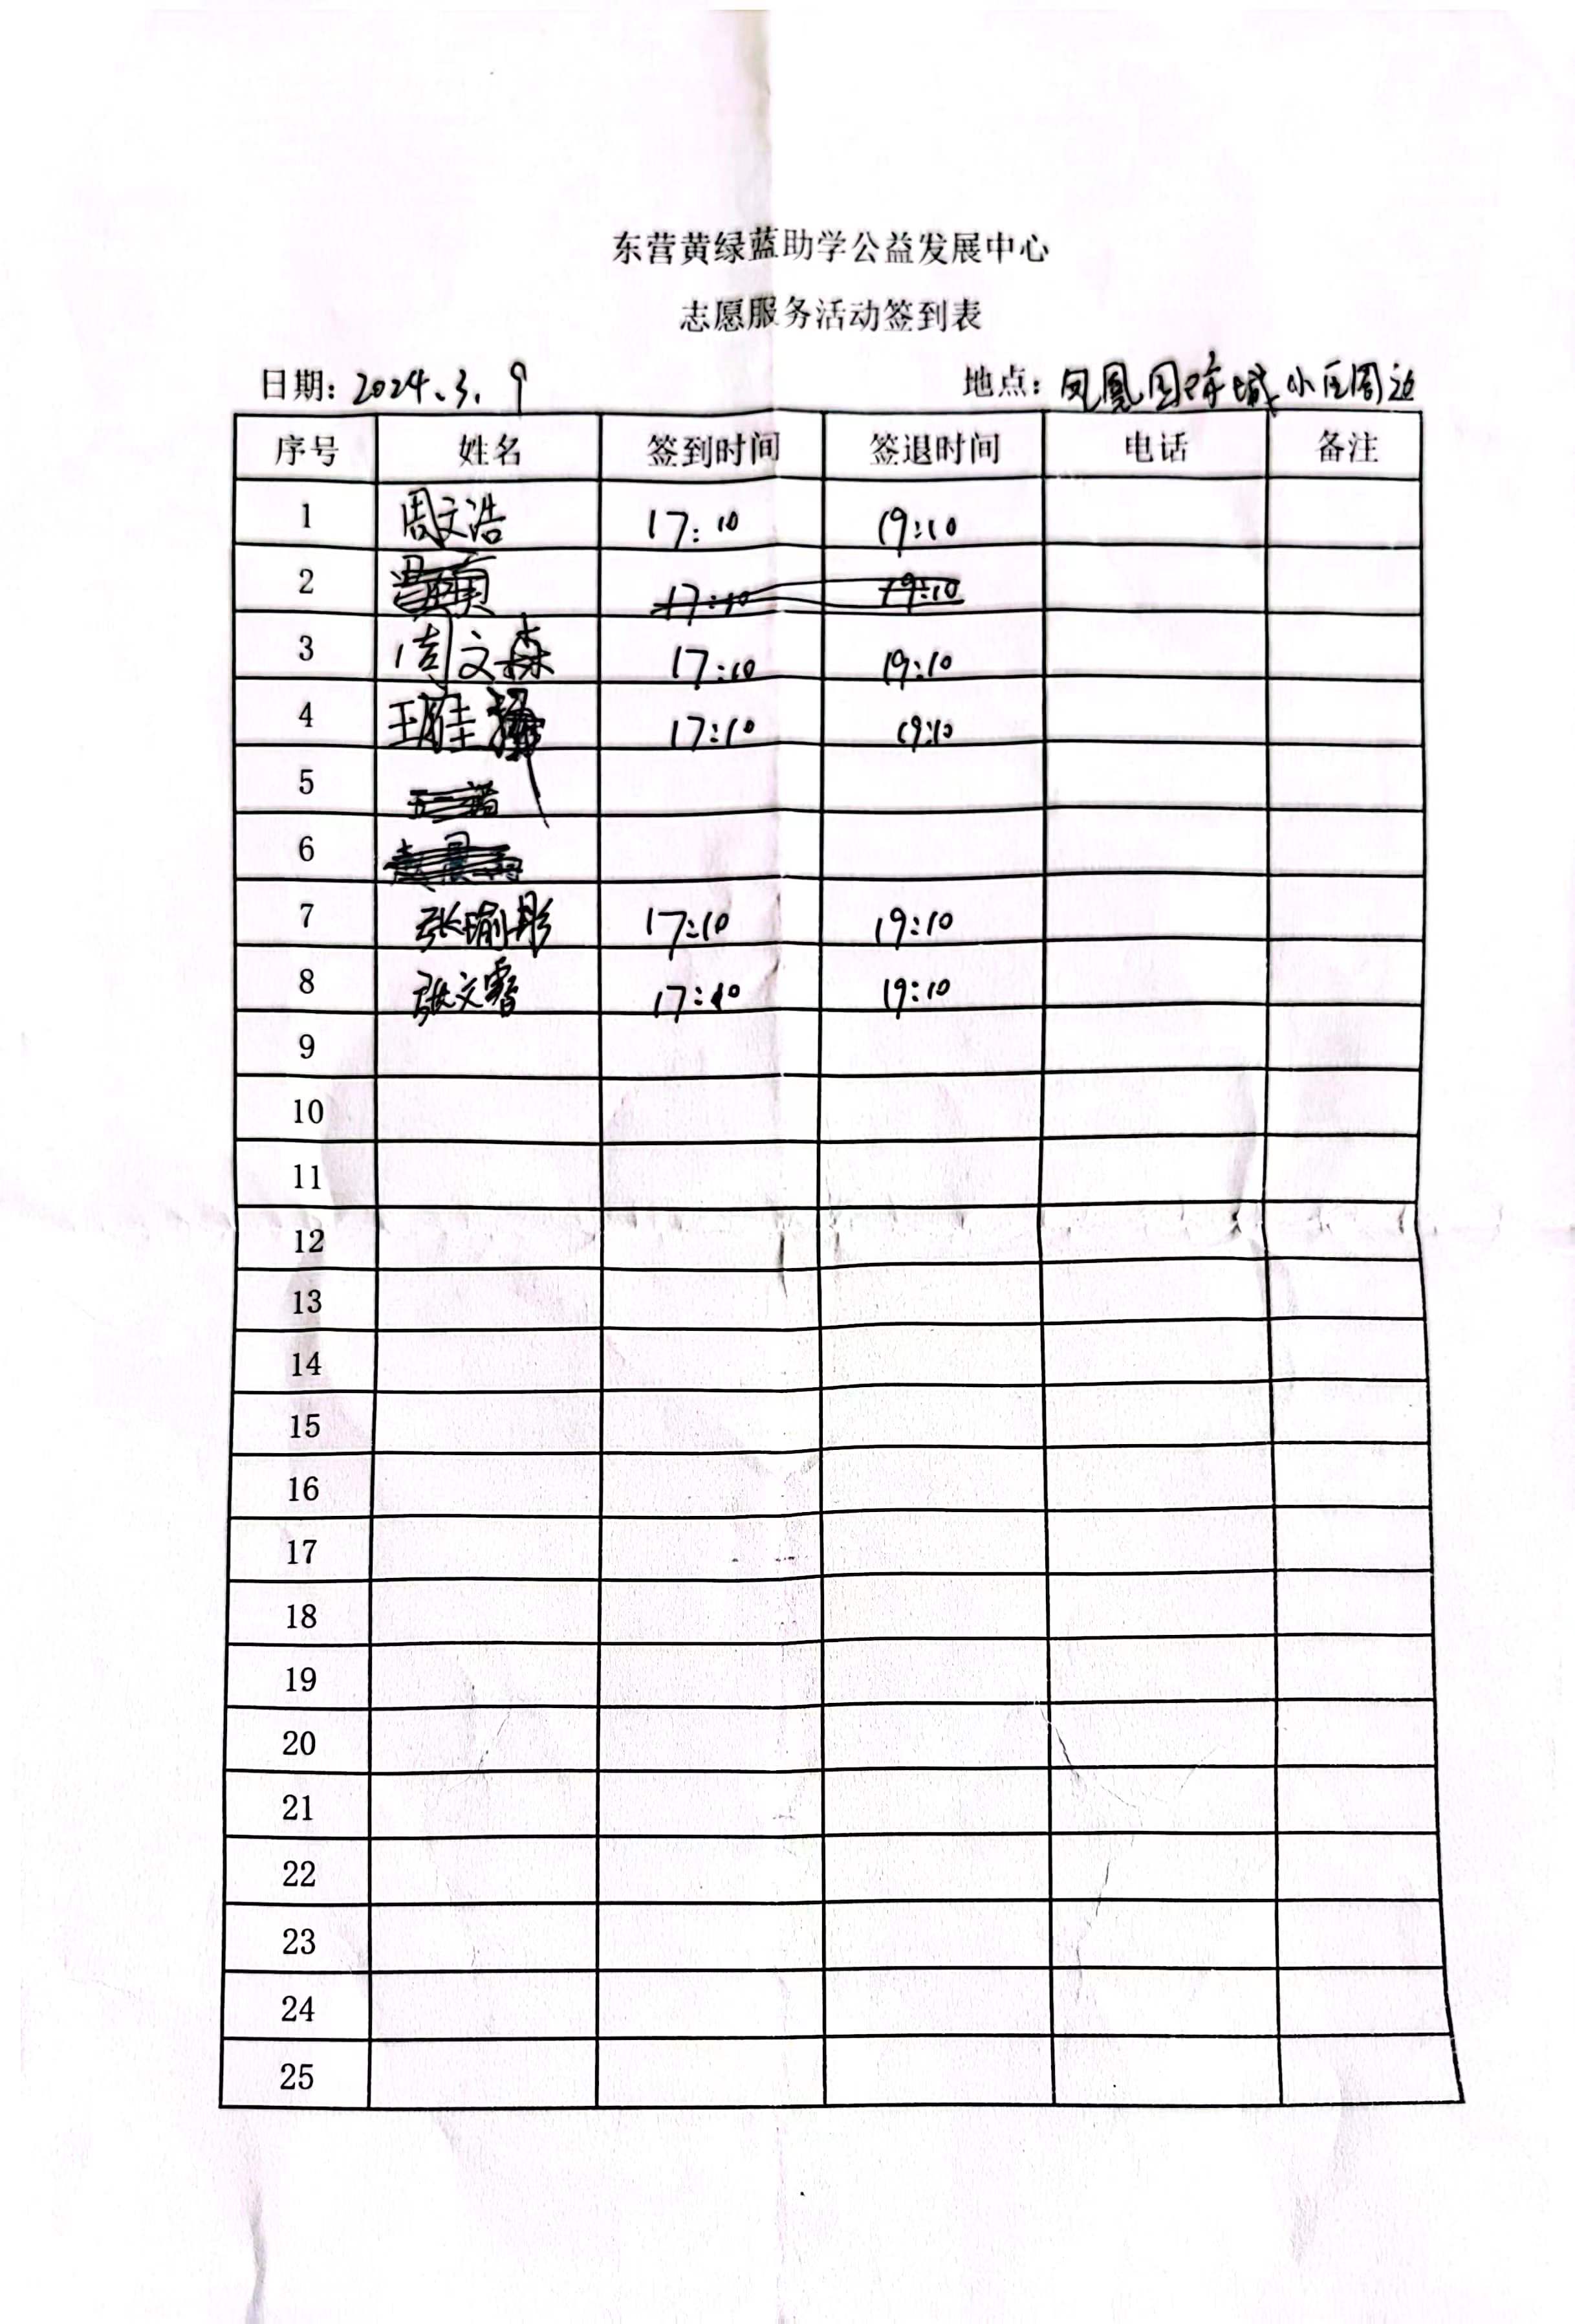 东营黄绿蓝助学公益发展中心
志愿服务活动签到表
日期：2024.3.9 地点：凤凰国际城小区周边
序号 姓名 签到时间 签退时间 电话 备注
1 周文浩 17:10 19:10
2 17:10 19:10
3 周文森 17:10 19:10
4 王胜 17:10 19:10
5
6
7 张瑜彤 17:10 19:10
8 张文霱 17:10 19:10
9
10
11
12
13
14
15
16
17
18
19
20
21
22
23
24
25